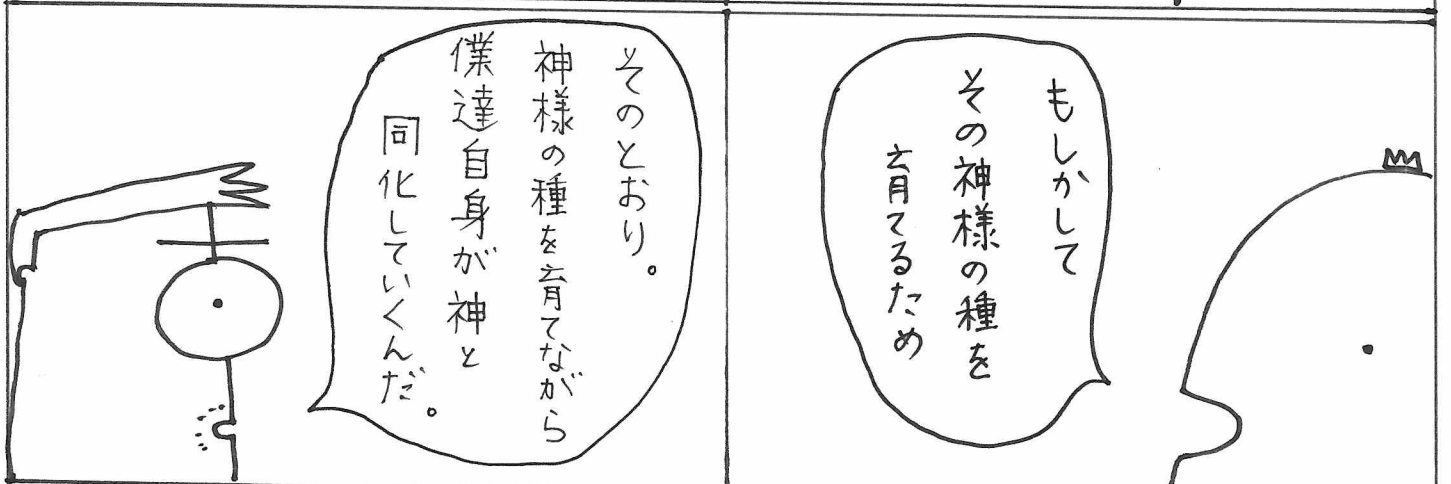 もしかして
その神様の種を
育てるため
そのとおり。
神様の種を育てながら
僕達自身が神と
同化していくんだ。